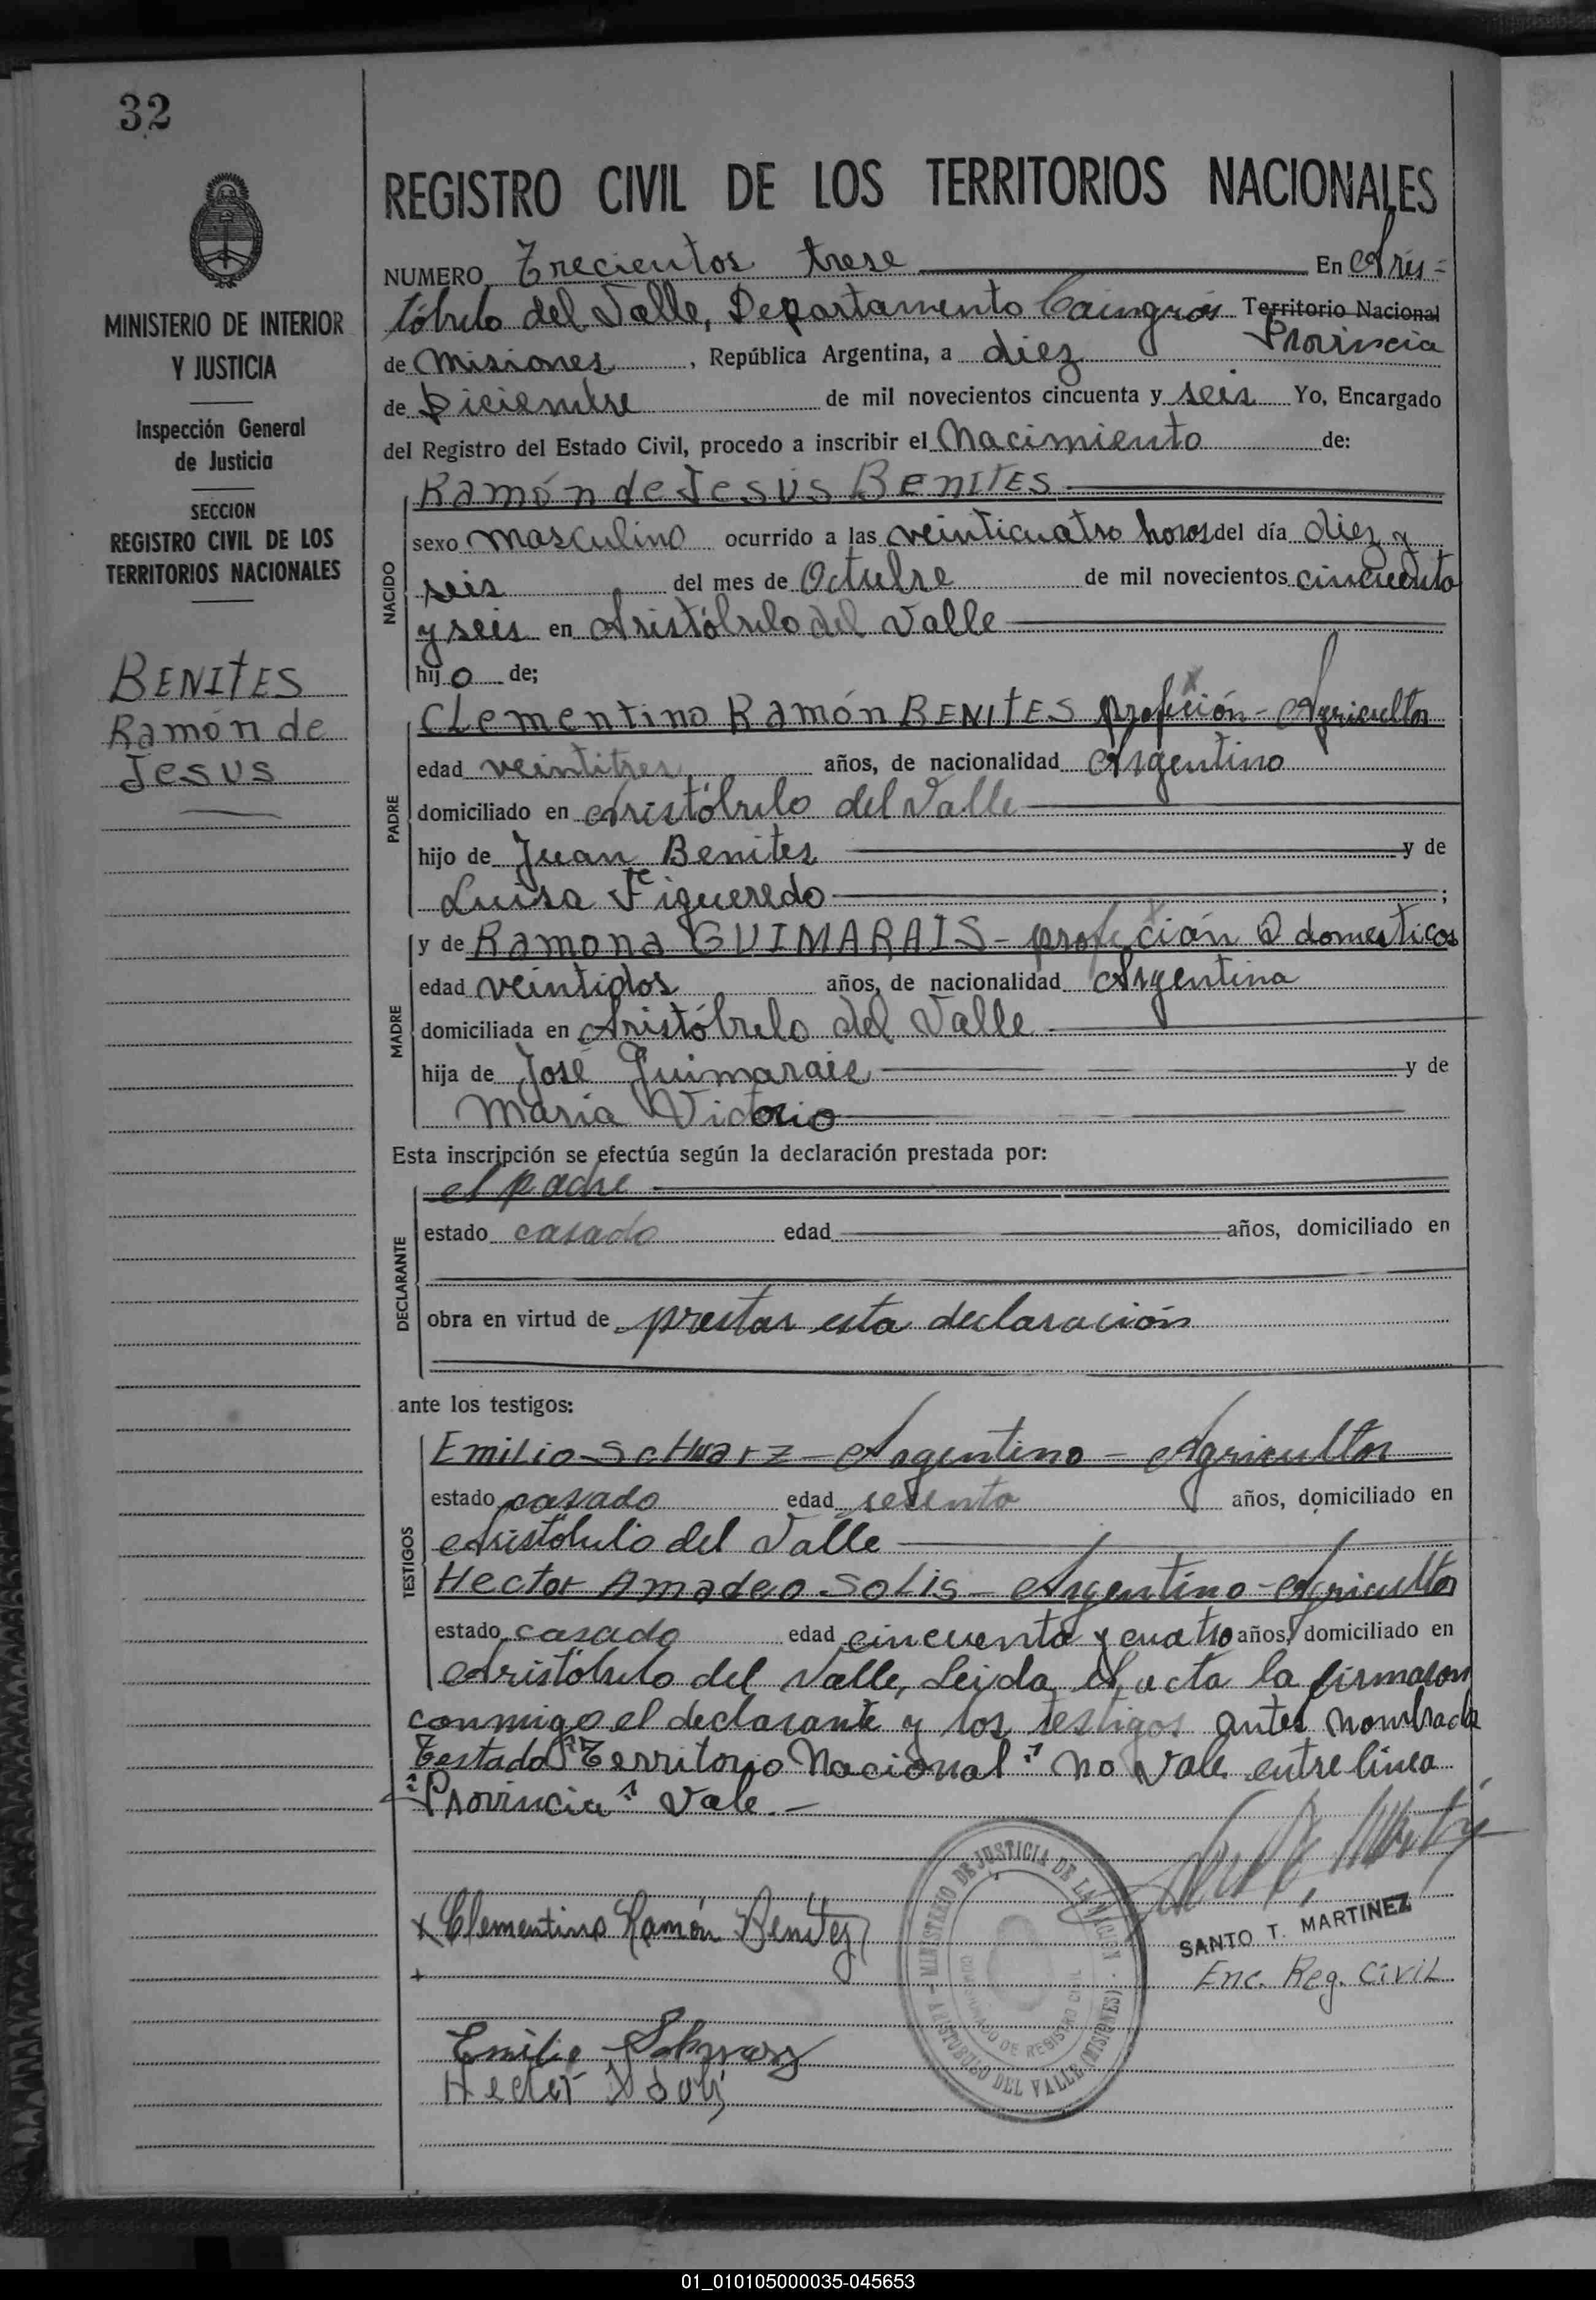 32
MINISTERIO DE INTERIOR
Y JUSTICIA
Inspección General
de Justicia
SECCION
REGISTRO CIVIL DE LOS
TERRITORIOS NACIONALES
BENITES
Ramón de
Jesus
REGISTRO CIVIL DE LOS TERRITORIOS NACIONALES
NUMERO Trecientos trese En Aris=
tóbulo del Valle, Departamento Cainguás Territorio Nacional
Provincia
de Misiones, República Argentina, a diez
de Diciembre de mil novecientos cincuenta y seis Yo, Encargado
del Registro del Estado Civil, procedo a inscribir el Nacimiento de:
Ramón de Jesus BENITES
NACIDO
sexo masculino ocurrido a las veinticuatro horas del día diez y
seis del mes de Octubre de mil novecientos cincuenta
y seis en Aristóbulo del Valle
hijo de;
PADRE
Clementino Ramón BENITES profeción - Agricultor
edad veintitres años, de nacionalidad Argentino
domiciliado en Aristóbulo del Valle
hijo de Juan Benites y de
Luisa Figueredo ;
MADRE
y de Ramona GUIMARAIS - profeción Q domesticos
edad veintidos años, de nacionalidad Argentina
domiciliada en Aristóbulo del Valle
hija de José Guimarais y de
Maria Victorio
Esta inscripción se efectúa según la declaración prestada por:
DECLARANTE
el padre
estado casado edad años, domiciliado en
obra en virtud de prestar esta declaración
ante los testigos:
TESTIGOS
Emilio Schwarz - Argentino - Agricultor
estado casado edad sesenta años, domiciliado en
Aristóbulo del Valle
Hector Amadeo Solis - Argentino - Agricultor
estado casado edad cincuenta y cuatro años, domiciliado en
Aristóbulo del Valle, Leida el acta la firmaron
conmigo el declarante y los testigos antes nombrado
Testado "Territorio Nacional" no vale entre linea
"Provincia" Vale.-
MINISTERIO DE JUSTICIA DE LA NACION
ARISTOBULO DEL VALLE (MISIONES)
DE REGISTRO CIVIL
x Clementino Ramón Benitez
+
SANTO T. MARTINEZ
Enc. Reg. Civil
Emilio Schwarz
Hector A Solis
01_010105000035-045653